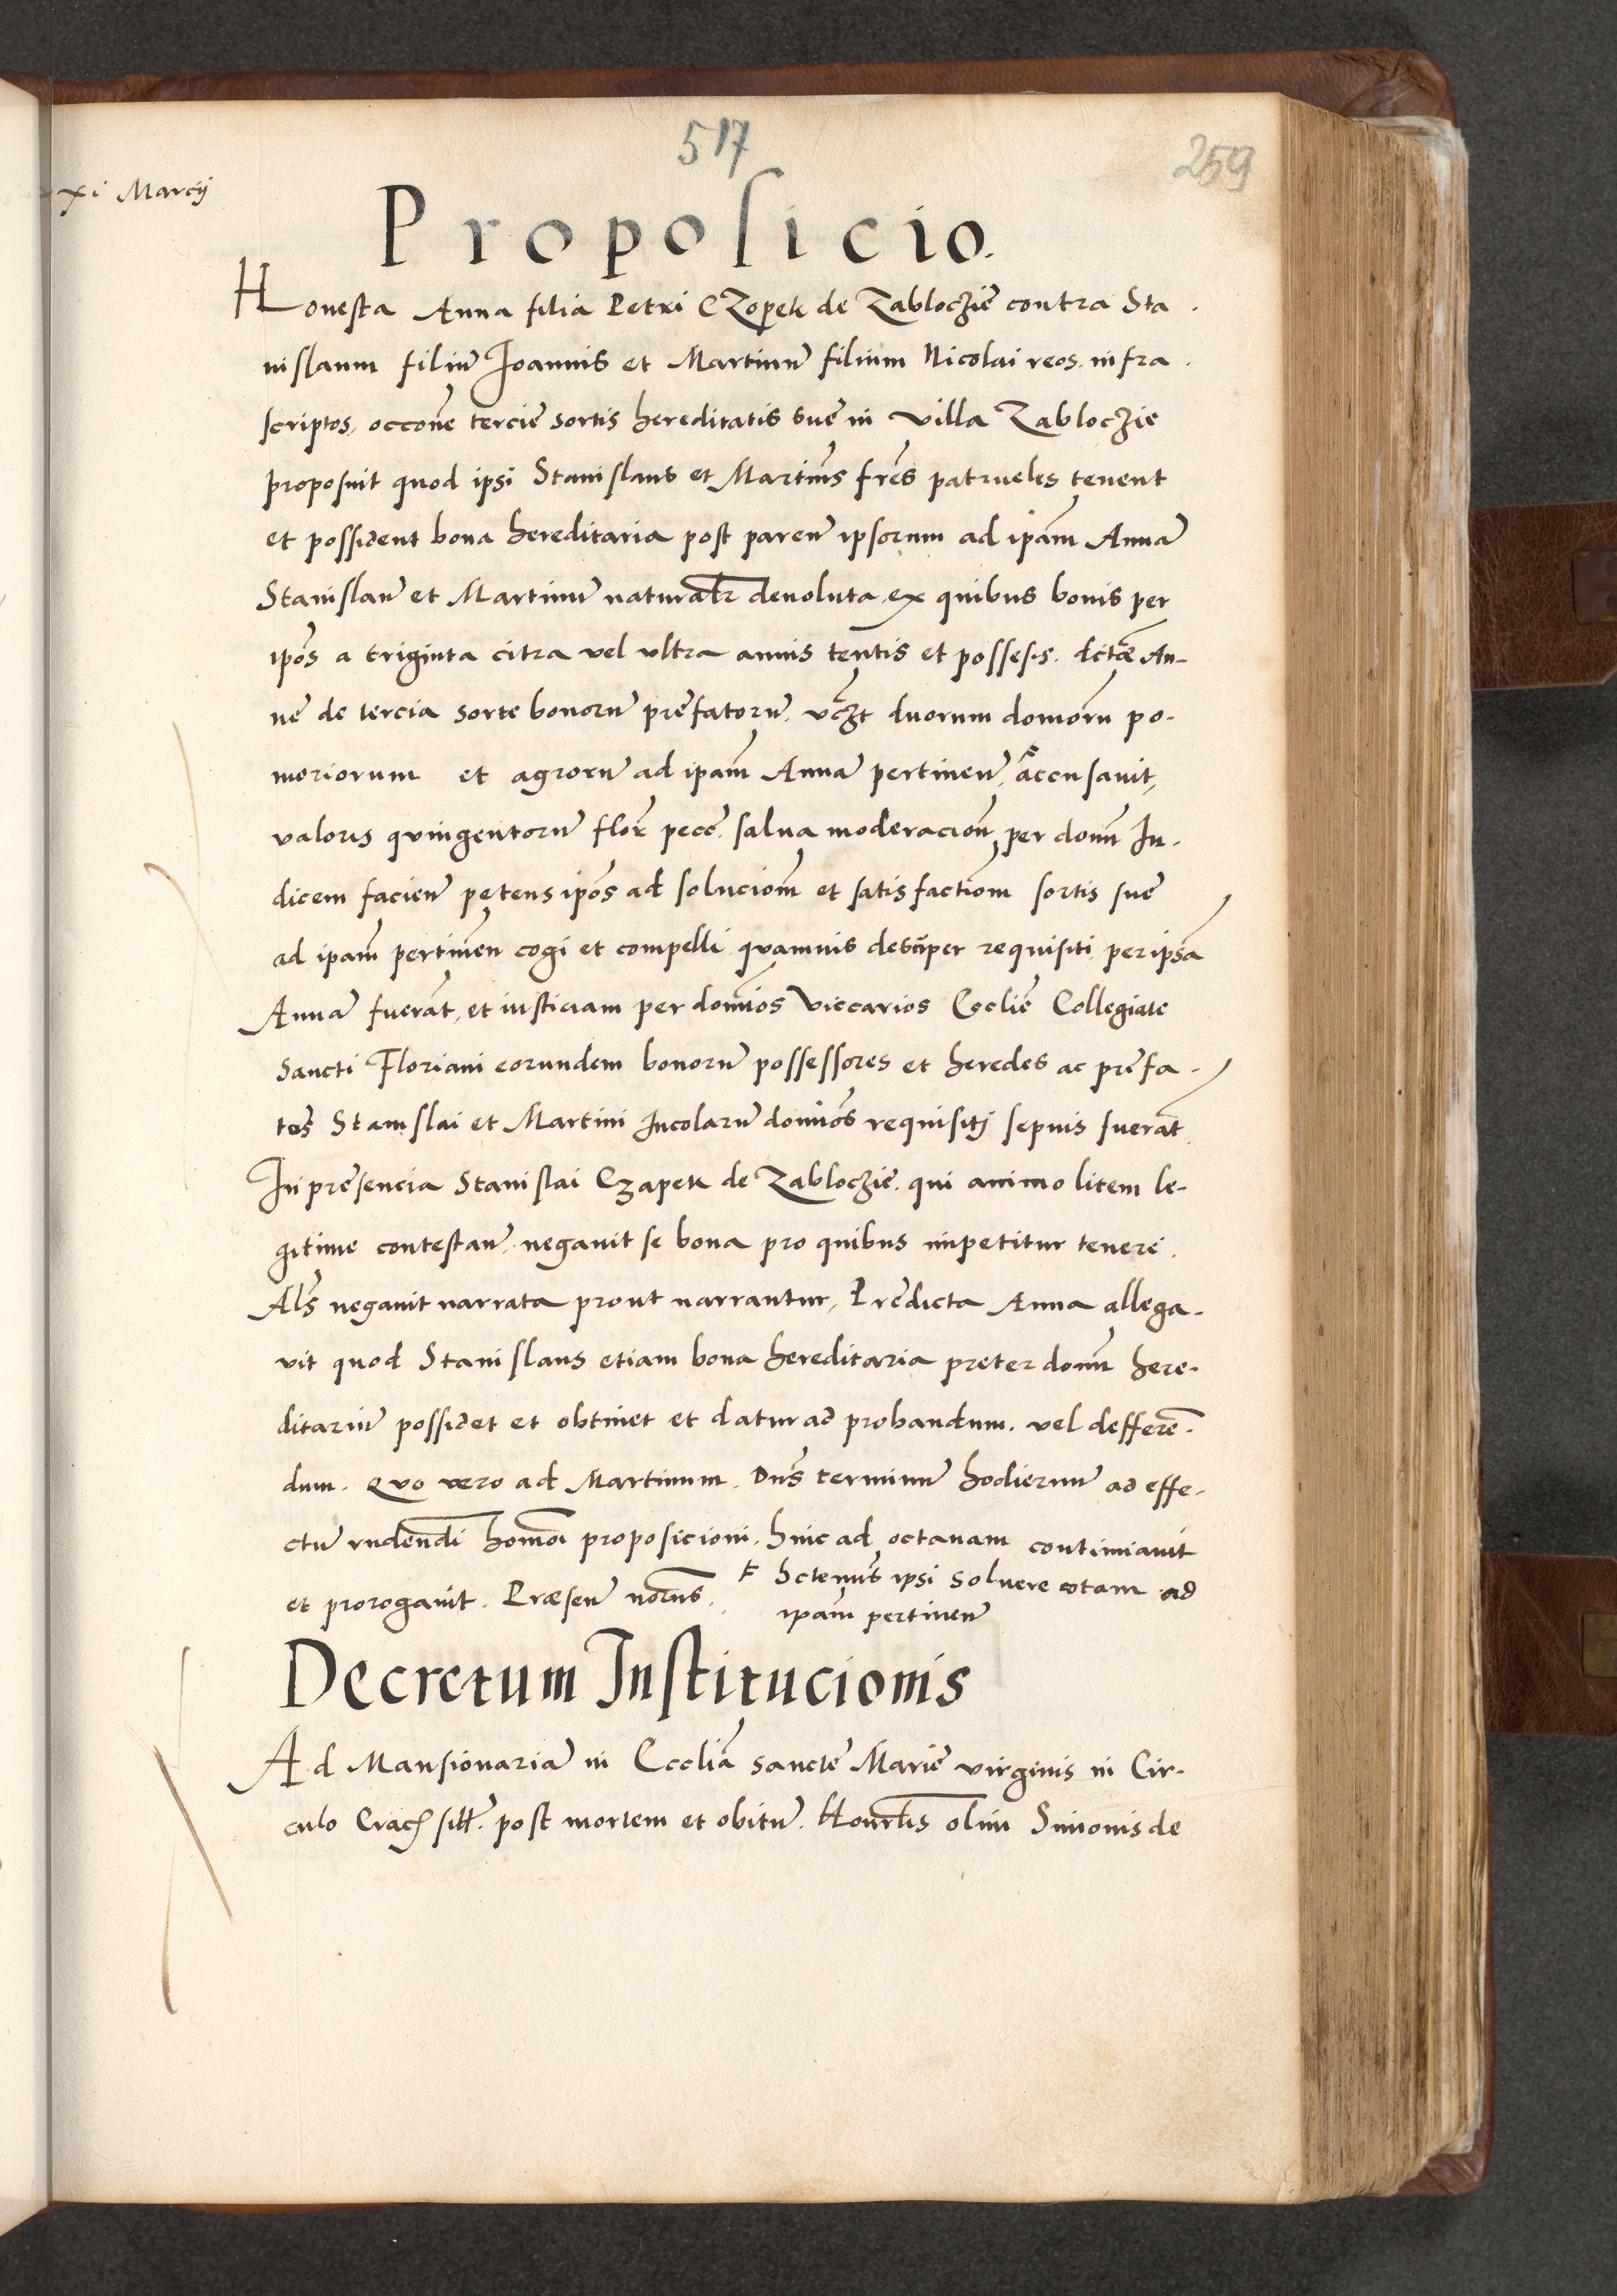 517
259
xi Marcij
Proposicio.
Honesta Anna filia Petri CZopek de Zabloczie contra Sta-
nislaum filiu Joannis et Martinu filium Nicolai reos infra-
scriptos, occone tercie sortis hereditatis sue in villa Zabloczie
proposuit quod ipsi Stanislaus et Martins fres patrueles tenent
et possident bona hereditaria post paren ipsorum ad ipam Anna
Stanislau et Martinu naturalr deuoluta, ex quibus bonis per
ipos a triginta citra vel vltra annis tentis et possesis. dicte An-
ne de tercia sorte bonoru prefatoru. vczt duorum domoru po-
moriorum et agroru ad ipam Anna pertinen, accusauit,
valoris quingentoru flor pecc. salua moderacion per domn Ju-
dicem facien petens ipos ad solucionm et satisfactionm sortis sue
ad ipam pertinen cogi et compelli quamuis desuper requisiti per ipsa
Anna fuerat, et iusticiam per domios Viccarios Ecclie Collegiate
Sancti Floriani eorundem bonoru possessores et heredes ac prefa-
tos Stanislai et Martini Incolaru domios requisitj sepuis fuerat
In presencia Stanislai Czapek de Zabloczie. qui animo litem le-
gitime contestan. negauit se bona pro quibus impetitur tenere.
Als negauit narrata prout narrantur, Predicta Anna allega-
vit quod Stanislaus etiam bona hereditaria preter domu here-
ditariu possidet et obtinet et datur ad probandum. vel defferen-
dum. Quo vero ad Martinum. Dns terminu hodiernu ad effe-
ctu rndendi homoi proposicioni. hinc ad octauam continuauit
et prorogauit. Præsen norus. ipsi Soluere cotam ad
ipam pertinen
Decretum Institucionis
Ad Mansionaria in Eccliã sancte Marie virginis in Cir-
culo Crac sitt. post mortem et obitu. Honrlis olim Simonis de